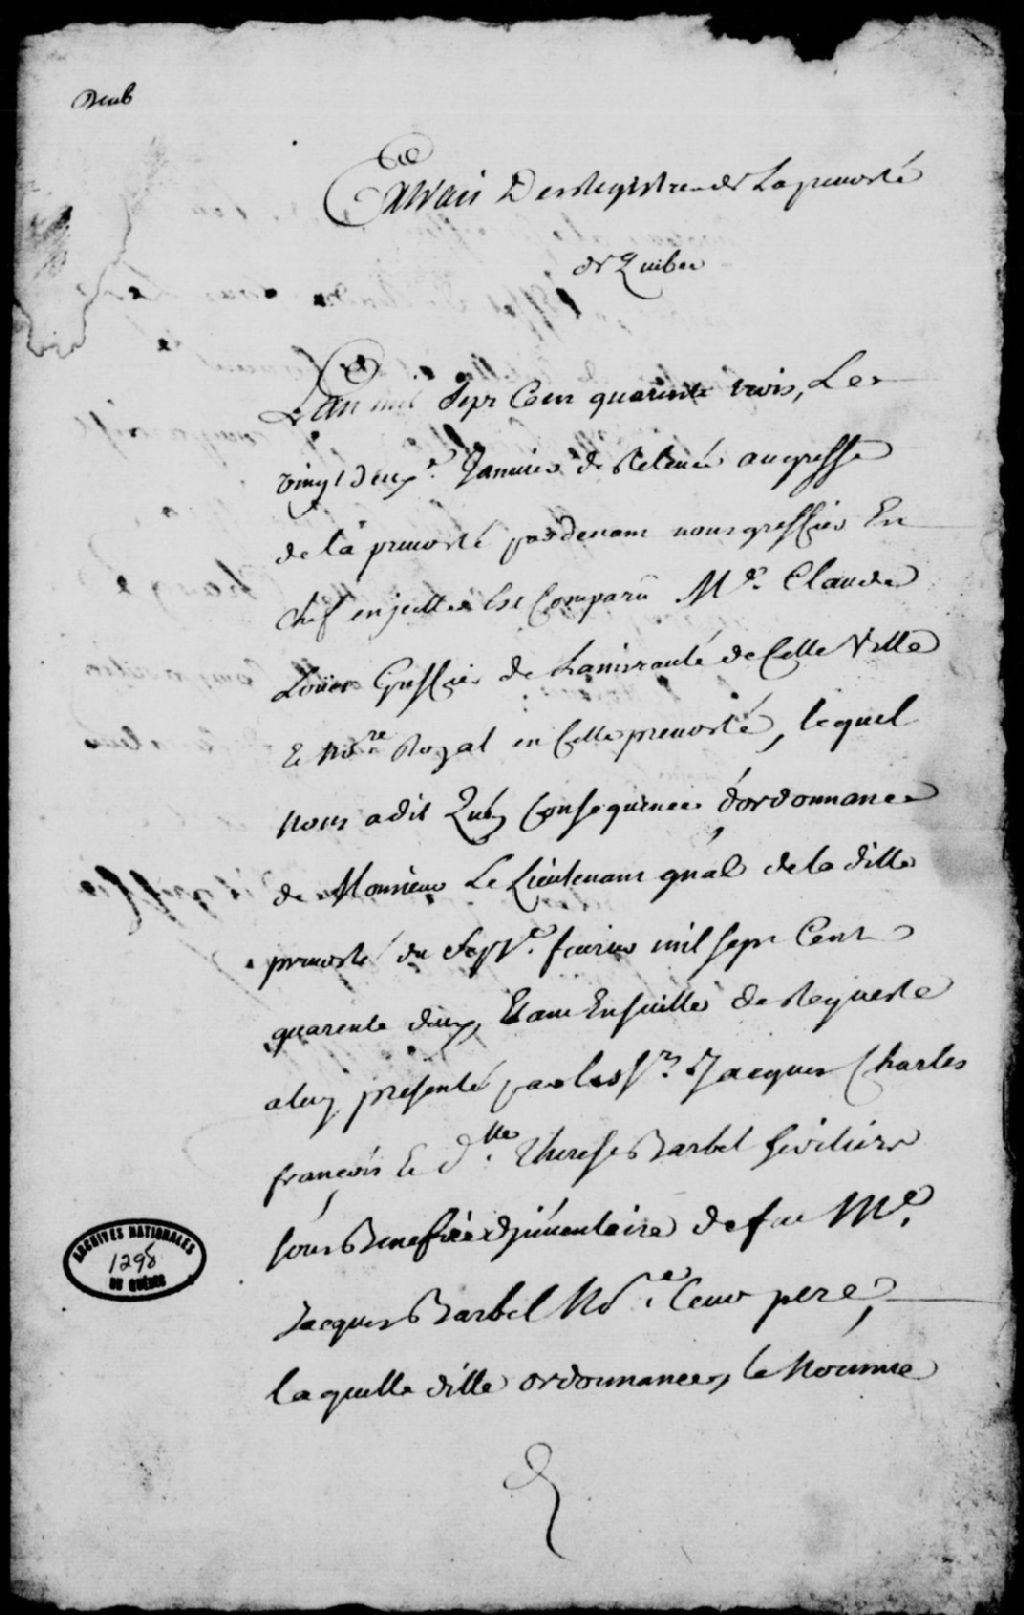 Extrait Des Registres de La prevosté
de Quebec
L'an mil sept Cent quarente trois, Le
vingt deux.e Janvier de Relevée au greffe
de la prevosté pardevant nous greffier En
chef en jcelle Est Comparu M.e Claude
Loüet Greffier de Lamirauté de Cette Ville
Et No.re Royal en Cette prevosté, lequel
nous a dit Qu'en Consequence d'ordonnance
de Monsieur Le Lieutenant gnâl de la ditte
prevosté du Sept.e fevrier mil sept Cent
quarente deux, Etant Ensuitte de Requeste
a luy presenté par les S.rs Jacques Charles
françois Et d.lle Therese Barbel heritiers
sous Benefice d'jnventaire de feu M.e
Jacques Barbel No.re Leur pere,
laquelle ditte ordonnance, le Nomme
ARCHIVES NATIONALES
1298
DU QUÉBEC